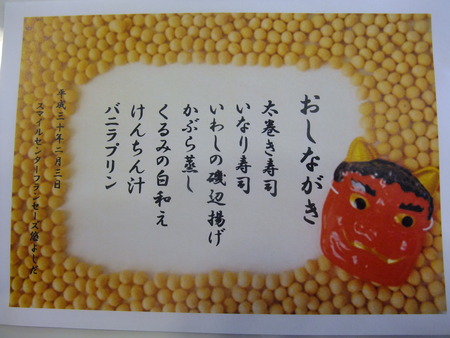 おしながき
太巻き寿司
いなり寿司
いわしの磯辺揚げ
かぶら蒸し
くるみの白和え
けんちん汁
バニラプリン
平成三十年二月三日
スマイルセンターフランセーズ悠よしだ